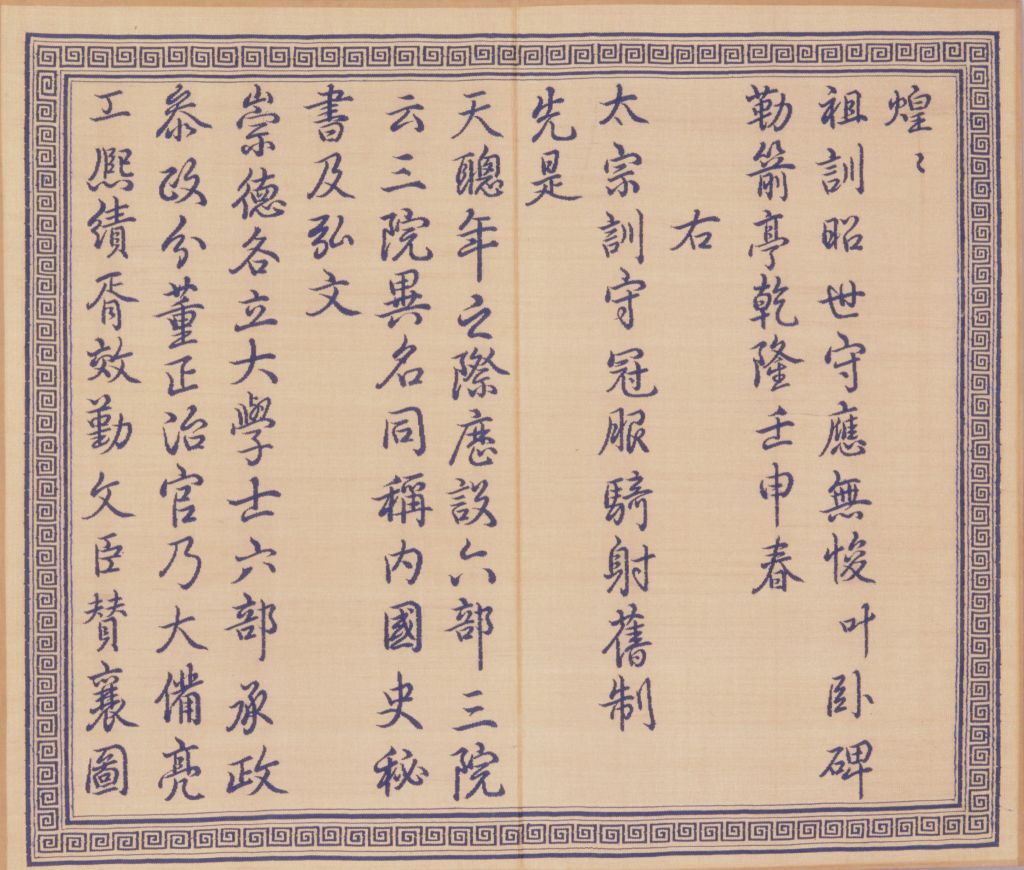 煌〻
祖訓昭世守應無悛叶卧碑
勒箭亭乾隆壬申春
右
太宗訓守冠服騎射舊制
先是
天聰年之際歴設六部三院
云三院異名同稱内國史秘
書及弘文
崇德各立大學士六部承政
叅政分董正治官乃大備亮
工熈績胥效勤文臣賛襄圖